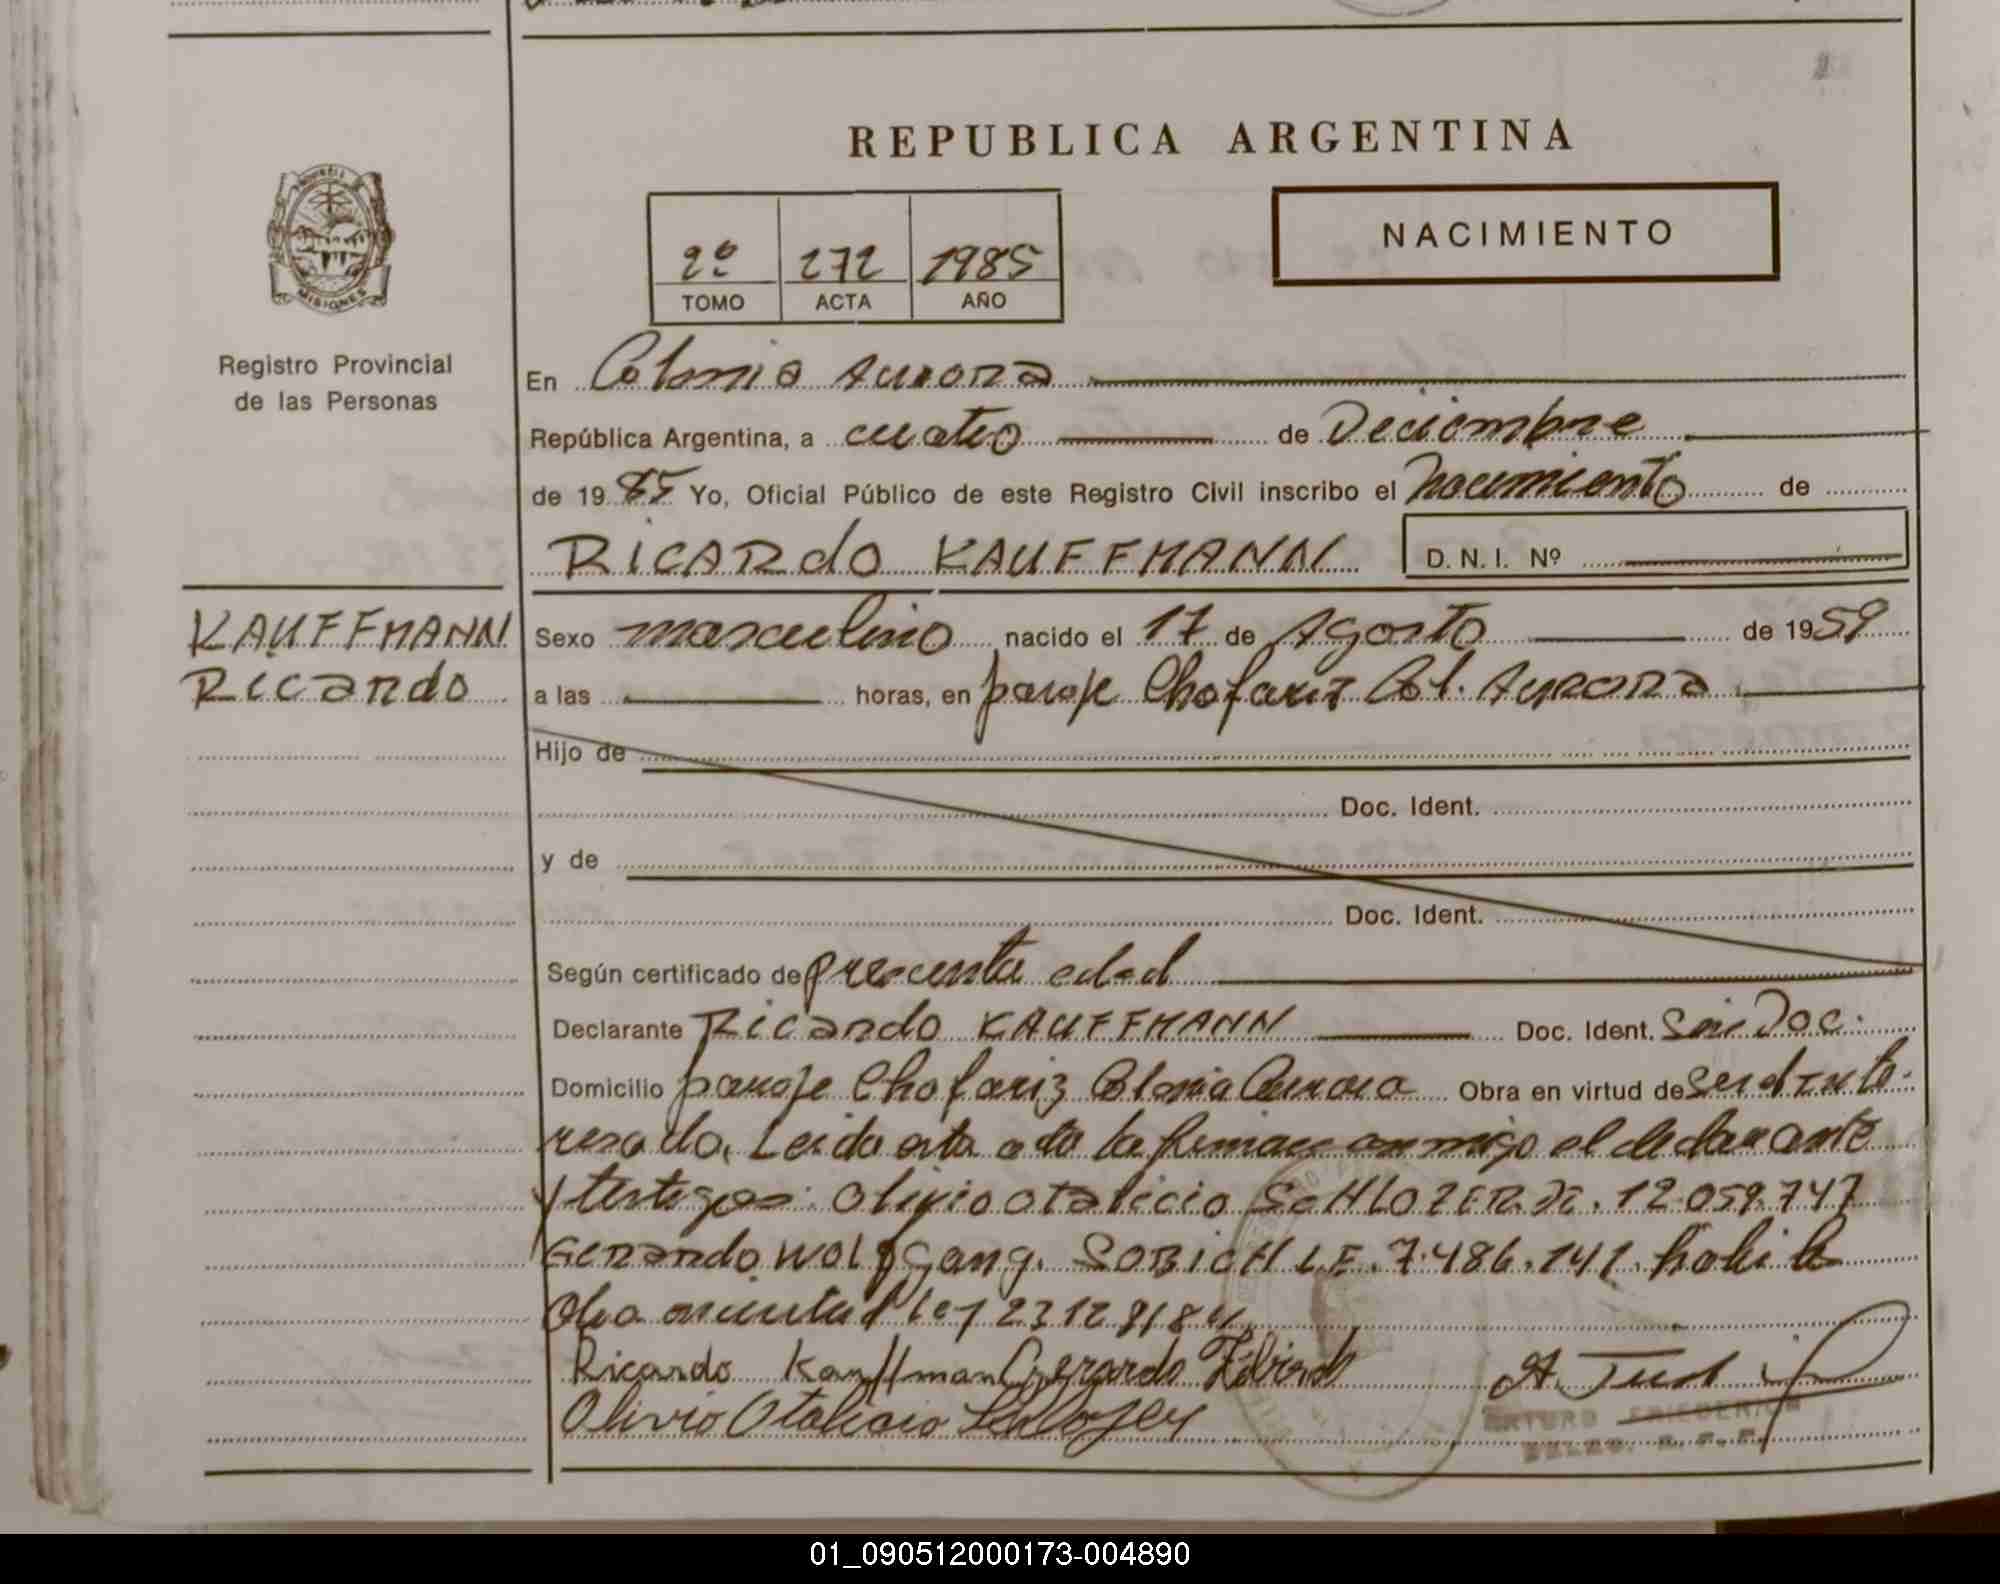 REPUBLICA ARGENTINA
NACIMIENTO
2º 272 1985
TOMO ACTA AÑO
MISIONES
Registro Provincial
de las Personas
En Colonia Aurora
República Argentina, a cuatro de Diciembre
de 1985 Yo, Oficial Público de este Registro Civil inscribo el nacimiento de
RICARdO KAUFFMANN D. N. I. Nº
KAUFFMANN
Ricardo
Sexo masculino nacido el 17 de Agosto de 1959
a las horas, en paraje Chafariz Col. Aurora
Hijo de
Doc. Ident.
y de
Doc. Ident.
Según certificado de presunta edad
Declarante Ricardo KAUFFMANN Doc. Ident. Sin Doc.
Domicilio paraje Chafariz Colonia Aurora Obra en virtud de ser el Inte-
resado. Leida esta acta la firman conmigo el declarante
y testigos: Olivio Otalicio ScHLOZER. 12.059.747
Gerardo Wolfgang. SOBICH L.E. 7.486.141.
Obra en virtud ley 23128/84
Ricardo Kauffman Gerardo
Olivio Otalicio
ARTURO FRIEDERICH
01_090512000173-004890